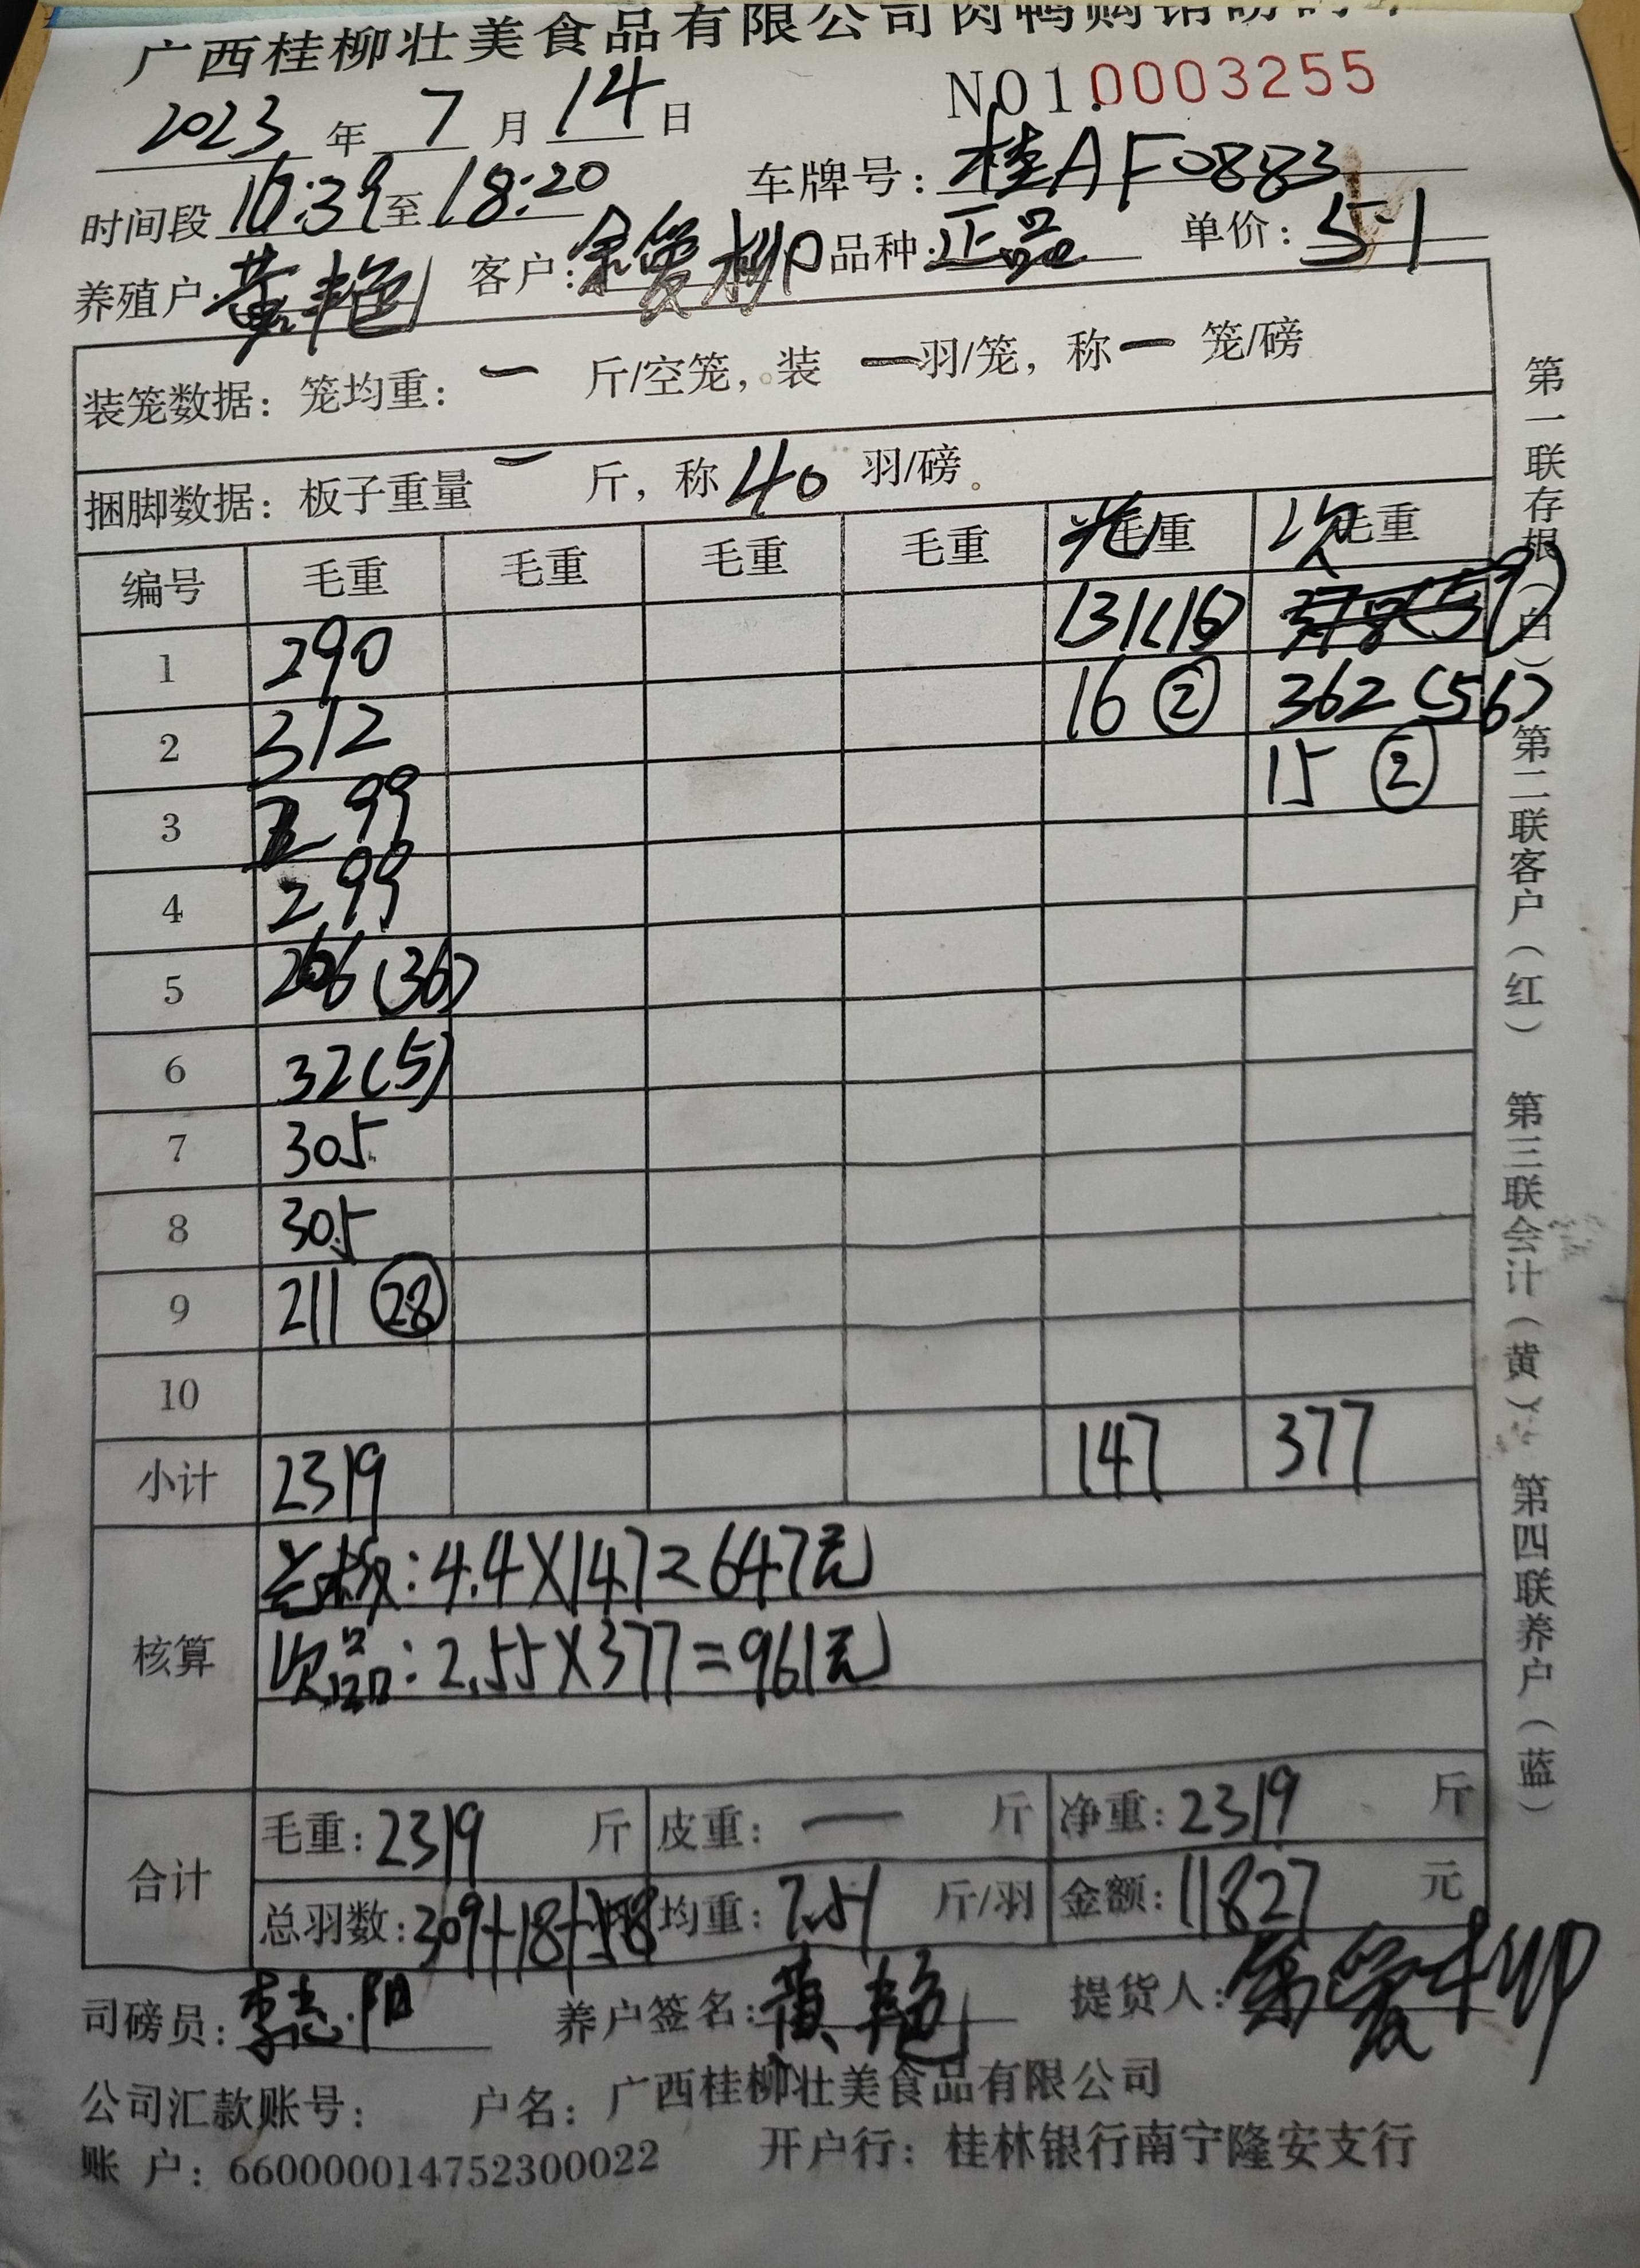 广西桂柳壮美食品有限公司肉鸭购销
2023 年 7 月 14 日 NO1.0003255
时间段 16:39 至 18:20 车牌号: 桂AF0883
养殖户: 黄艳 客户: 余爱柳 品种: 正品 单价: 5.1
装笼数据: 笼均重: 一 斤/空笼, 装 一 羽/笼, 称 一 笼/磅
捆脚数据: 板子重量 一 斤, 称 40 羽/磅。
编号 毛重 毛重 毛重 毛重 毛重 次 毛重
1 290 131(16)
2 312 16 ② 362 (56)
3 299 15 ②
4 299
5 266 (36)
6 32(5)
7 305
8 305
9 211 ㉘
10
小计 2319 147 377
核算
: 4.4×147=647元
次品: 2.55×377=961元
合计
毛重: 2319 斤 皮重: 一 斤 净重: 2319 斤
总羽数: 309+18+58 均重: 7.51 斤/羽 金额: 11827 元
司磅员: 李志阳 养户签名: 黄艳 提货人: 余爱柳
公司汇款账号: 户名: 广西桂柳壮美食品有限公司
账 户: 660000014752300022 开户行: 桂林银行南宁隆安支行
第一联存根(白) 第二联客户(红) 第三联会计(黄) 第四联养户(蓝)